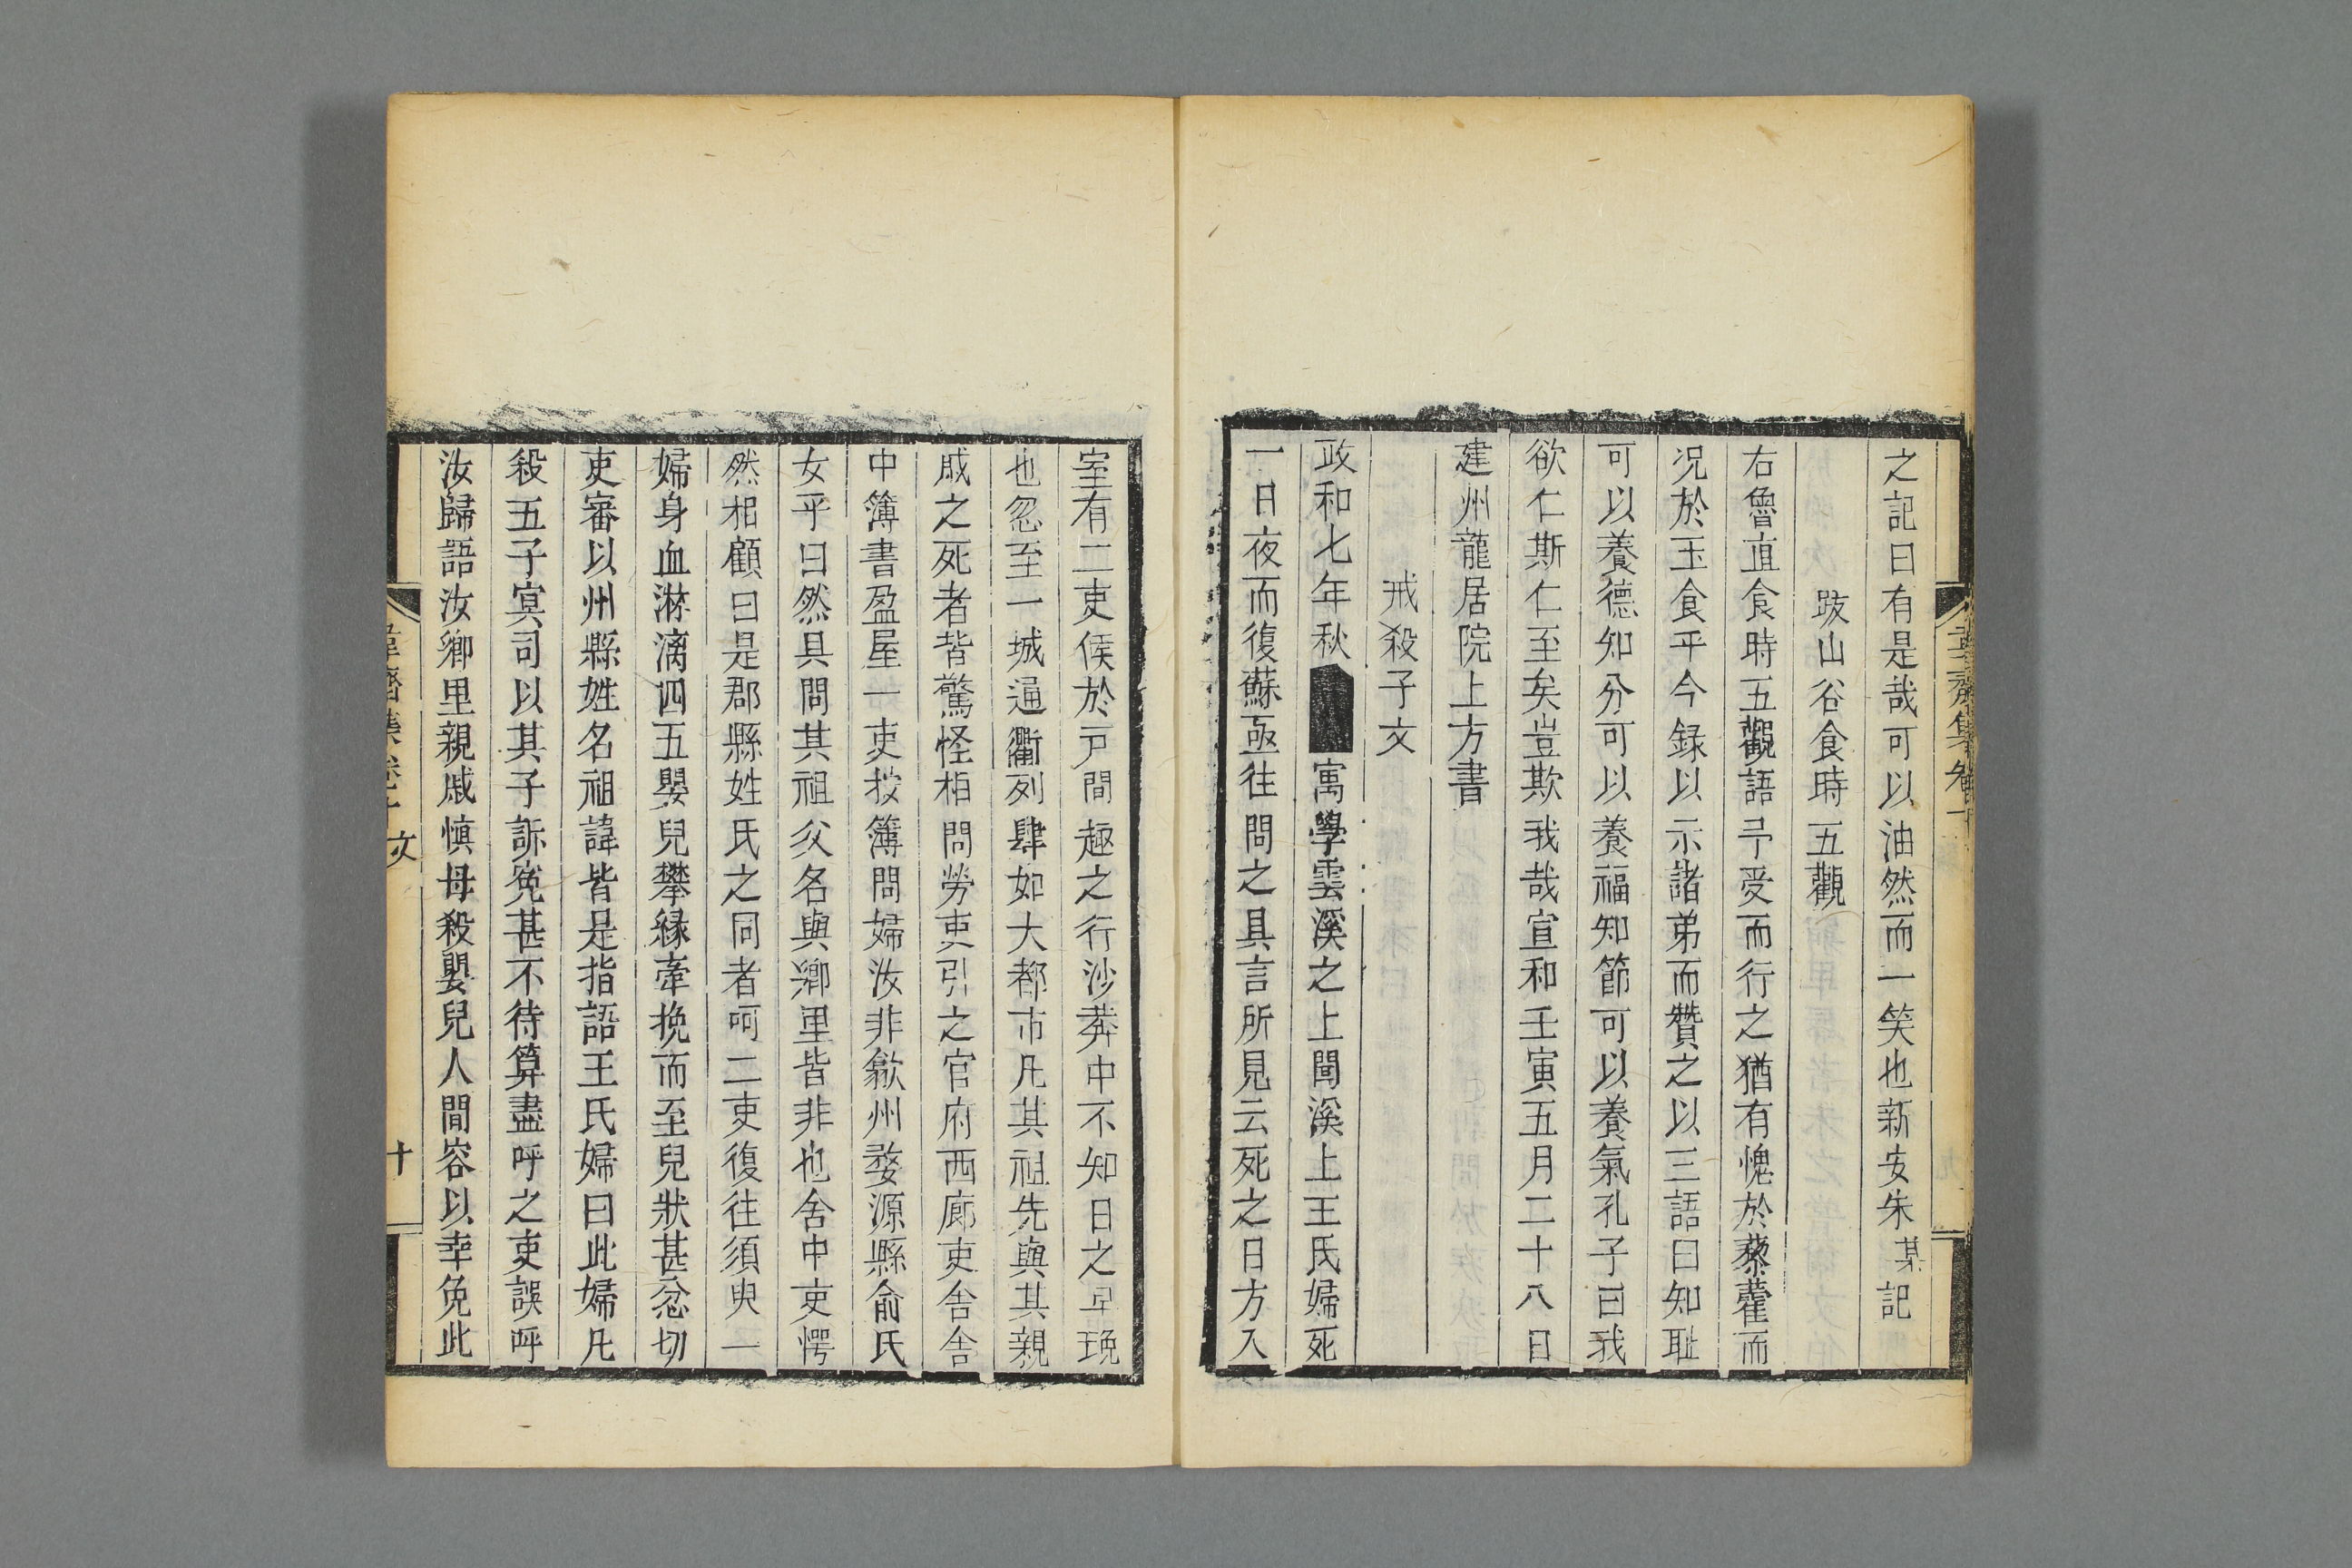 之記曰有是哉可以油然而一笑也新安朱某記
跋山谷食時五觀
右魯直食時五觀語予受而行之猶有愧於藜藿而
况於玉食乎今録以示諸弟而贊之以三語曰知耻
可以養德知分可以養福知節可以養氣孔子曰我
欲仁斯仁至矣豈欺我哉宣和壬寅五月二十八日
建州龍居院上方書
戒殺子文
政和七年秋寓學雲溪之上閩溪上王氏婦死
一日夜而復蘇亟往問之具言所見云死之日方入
室有二吏候於戸間趣之行沙莽中不知日之早晚
也忽至一城通衢列肆如大都市凡其祖先與其親
戚之死者皆驚怪相問勞吏引之官府西廊吏舍舍
中簿書盈屋一吏按簿問婦汝非歙州婺源縣俞氏
女乎曰然具問其祖父名與鄉里皆非也舍中吏愕
然相顧曰是郡縣姓氏之同者呵二吏復往須臾一
婦身血淋漓四五嬰兒攀緣牽挽而至兒狀甚忿切
吏審以州縣姓名祖諱皆是指語王氏婦曰此婦凡
殺五子冥司以其子訴寃甚不待算盡呼之吏誤呼
汝歸語汝鄉里親戚慎毋殺嬰兒人間容以幸免此
韋齋集卷十 文 十